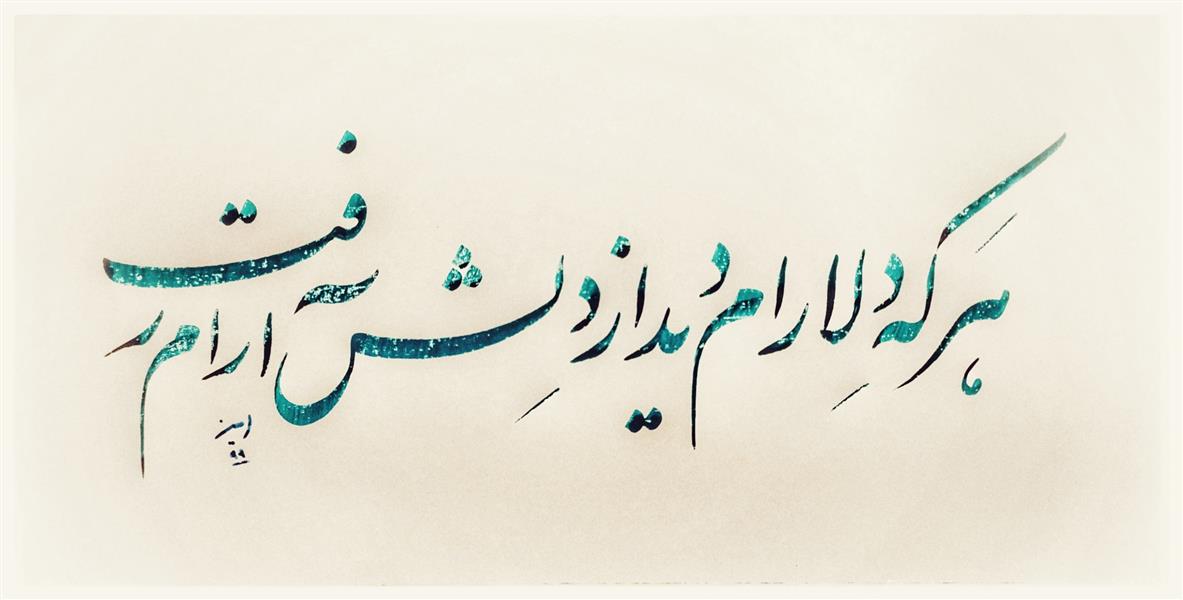 هر که دلارام دید از دلش آرام رفت